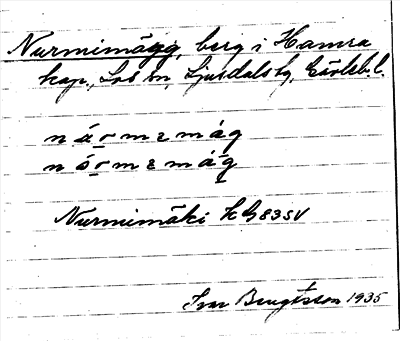 Nurmimägg, berg i Hamra
kap., Los sn, Ljusdals tg, Gävleb. l.
nármɛmág
nórmɛmág
Nurmimäki KG83SV
Ivar Bengtsson 1935